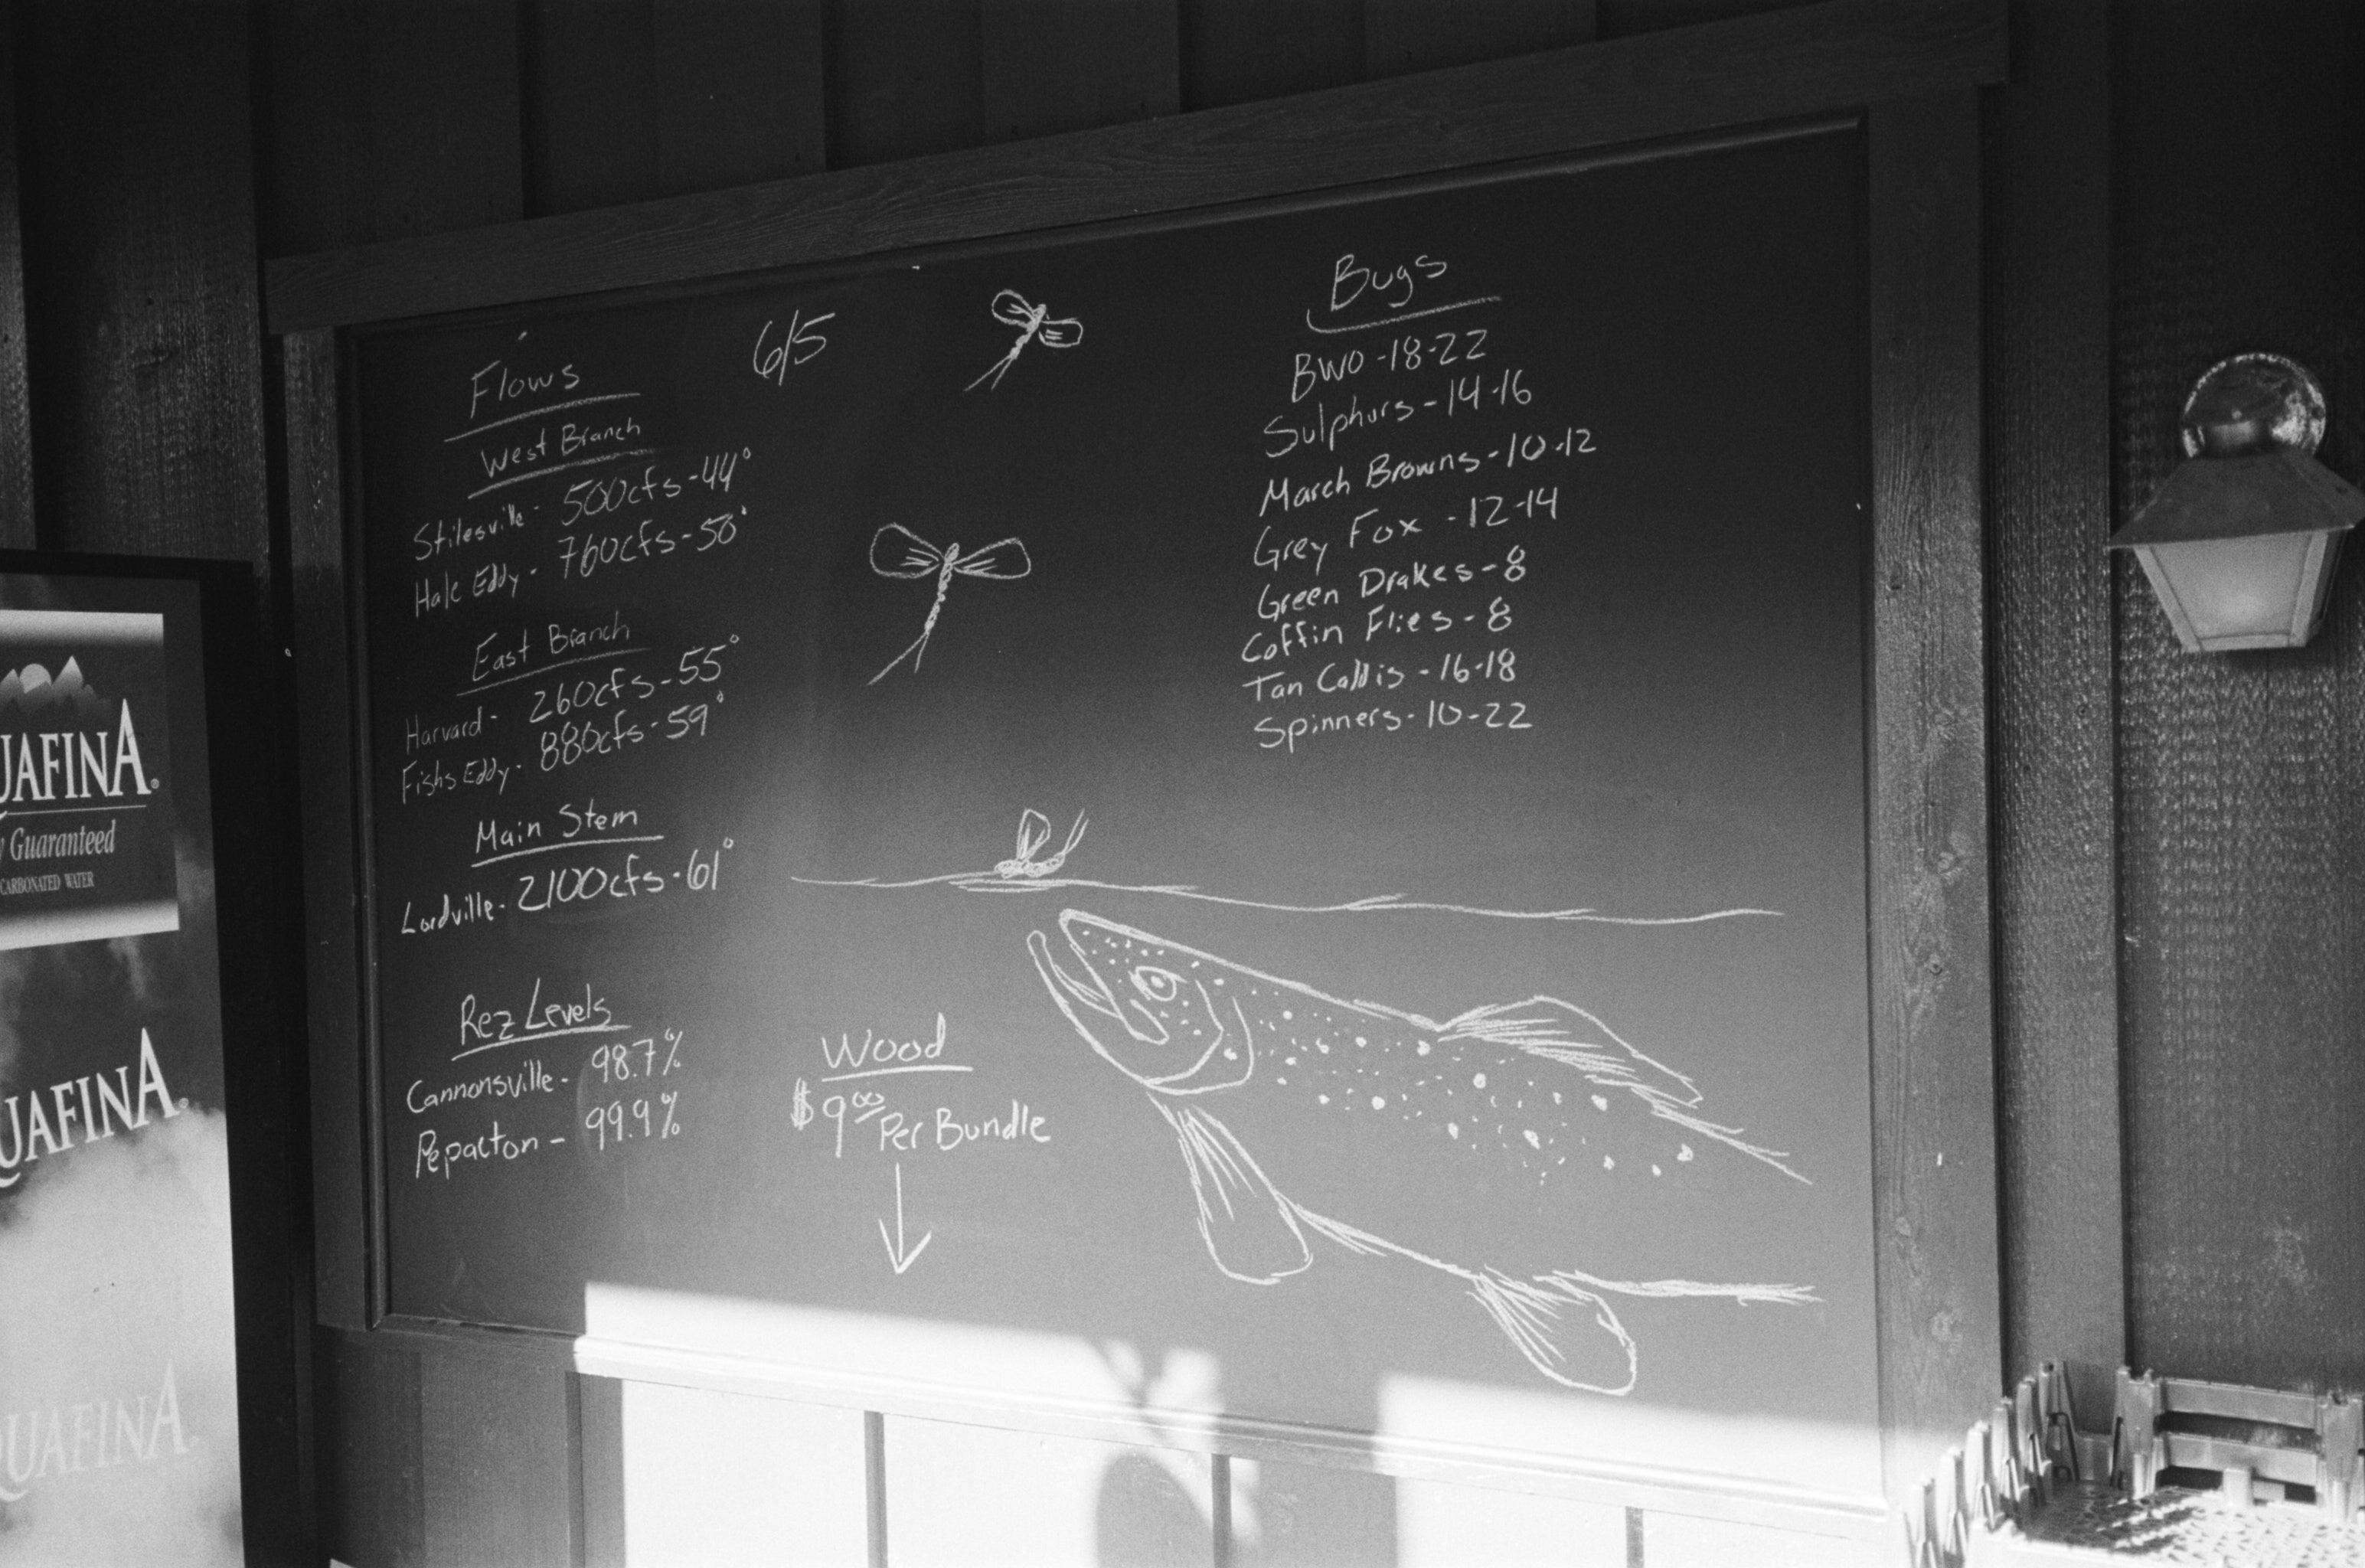 Flows
West Branch
Stilesville - 500cfs - 44°
Hale Eddy - 760cfs - 50°
East Branch
Harvard - 260cfs - 55°
Fishs Eddy - 880cfs - 59°
Main Stem
Lordville - 2100cfs - 61°
Rez Levels
Cannonsville - 98.7%
Pepacton - 99.9%
6/5
Wood
$9.00 Per Bundle
Bugs
BWO - 18-22
Sulphurs - 14-16
March Browns - 10-12
Grey Fox - 12-14
Green Drakes - 8
Coffin Flies - 8
Tan Caddis - 16-18
Spinners - 10-22
UAFINA®
y Guaranteed
CARBONATED WATER
UAFINA®
QUAFINA